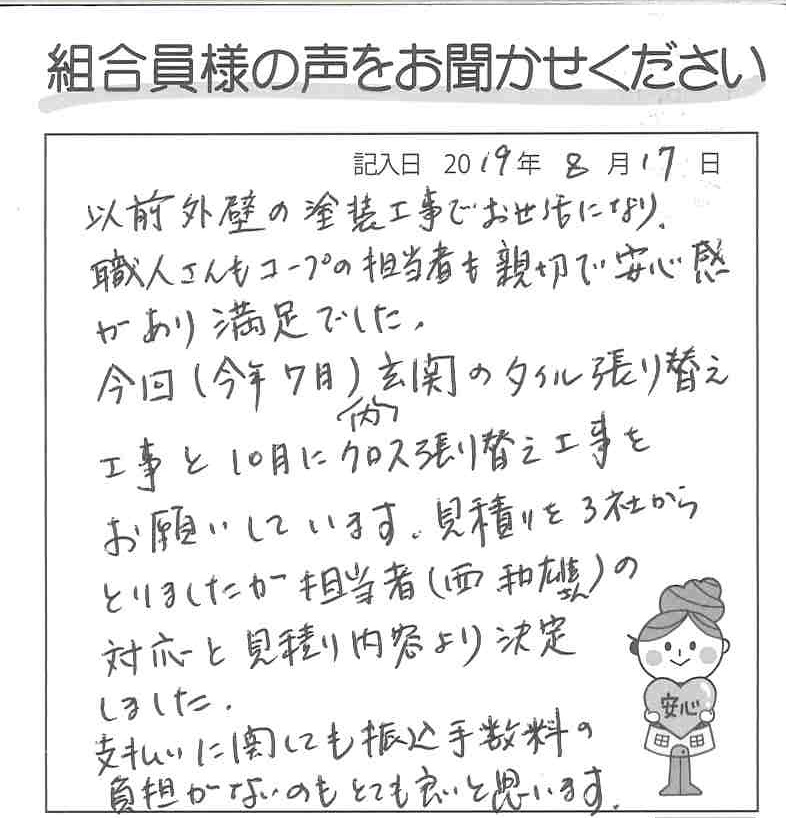 組合員様の声をお聞かせください
記入日 2019年 8月17日
以前外壁の塗装工事でお世話になり、
職人さんもコープの担当者も親切で安心感
があり満足でした。
今回(今年7月)玄関のタイル張り替え
工事と10月に(内)クロス張り替え工事を
お願いしています。見積りを3社から
とりましたが担当者(西 和雄さん)の
対応と見積り内容より決定
しました。
支払いに関しても振込手数料の
負担がないのもとても良いと思います。
安心